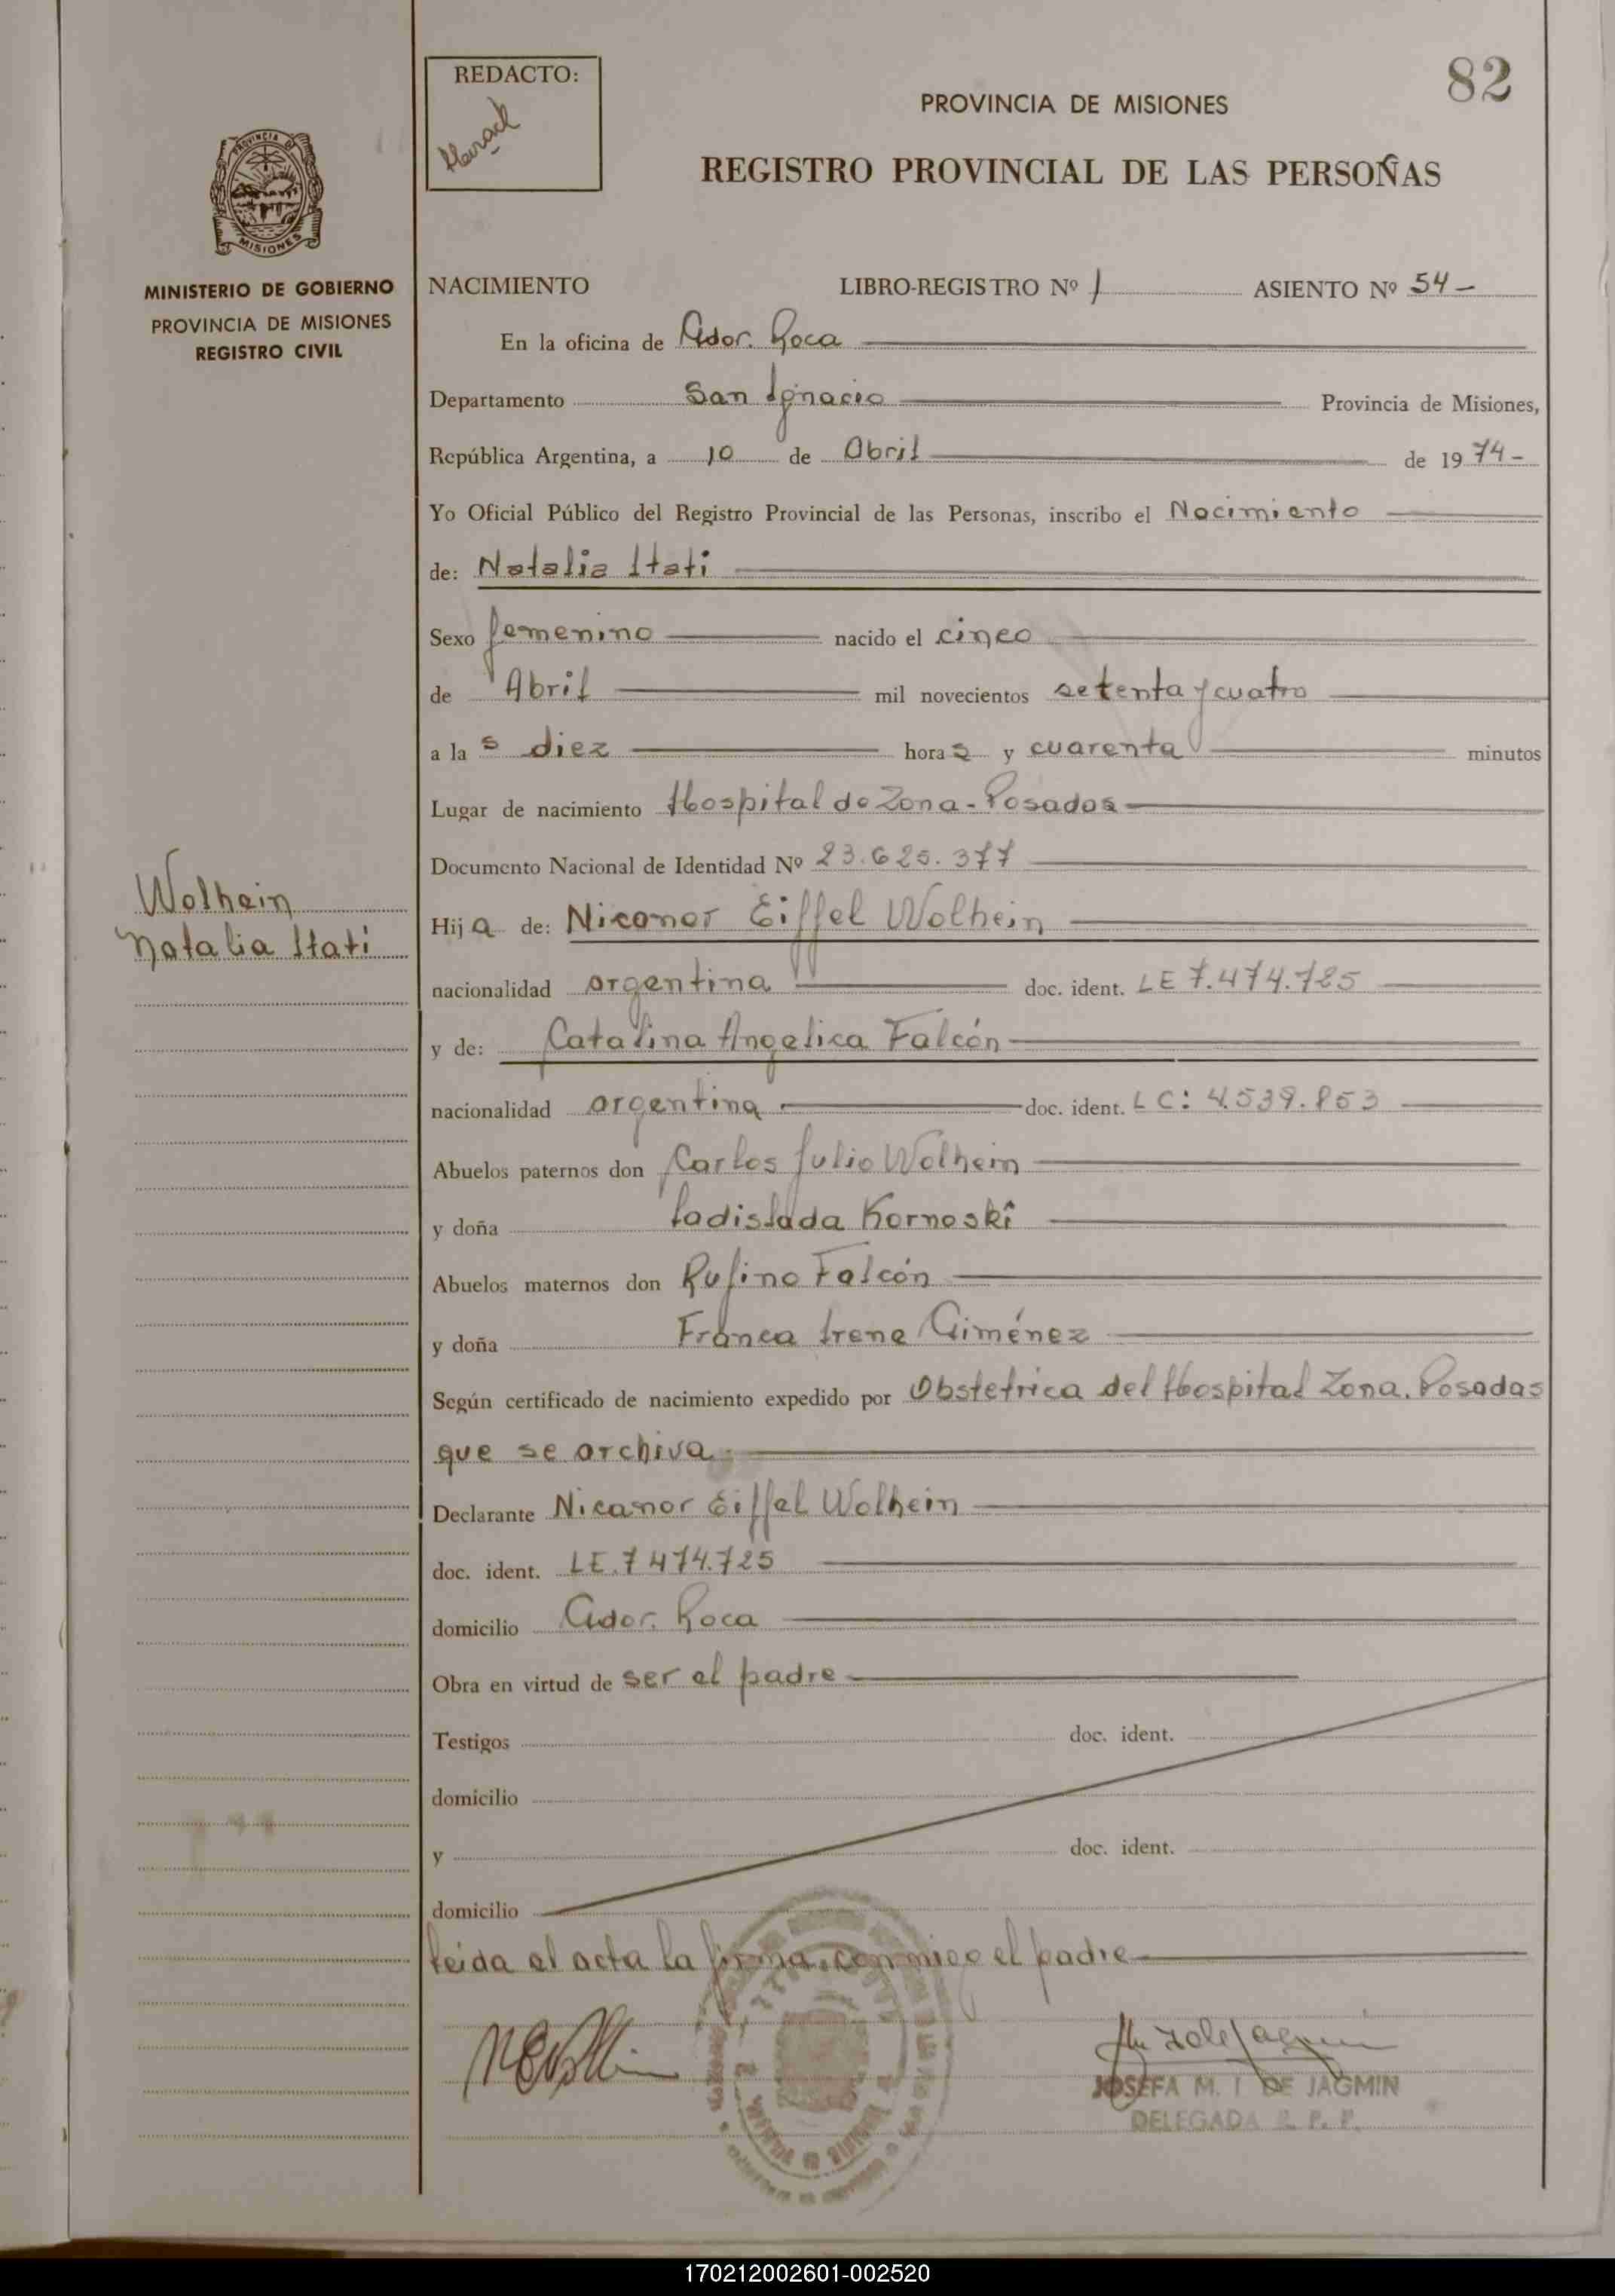 82
REDACTO:
PROVINCIA DE MISIONES
REGISTRO PROVINCIAL DE LAS PERSOÑAS
PROVINCIA DE
MISIONES
MINISTERIO DE GOBIERNO
PROVINCIA DE MISIONES
REGISTRO CIVIL
NACIMIENTO LIBRO-REGISTRO Nº 1 ASIENTO Nº 54-
En la oficina de Gdor. Roca
Departamento San Ignacio Provincia de Misiones,
República Argentina, a 10 de Abril de 1974-
Yo Oficial Público del Registro Provincial de las Personas, inscribo el Nacimiento
de: Natalia Itati
Sexo femenino nacido el cinco
de Abril mil novecientos setenta y cuatro
a las diez horas y cuarenta minutos
Lugar de nacimiento Hospital de Zona-Posadas
Documento Nacional de Identidad Nº 23.625.377
Wolhein
Natalia Itati
Hija de: Nicanor Eiffel Wolhein
nacionalidad argentina doc. ident. LE 7.474.725
y de: Catalina Angelica Falcón
nacionalidad argentina doc. ident. LC: 4.539.853
Abuelos paternos don Carlos Julio Wolhein
y doña Ladislada Kornoski
Abuelos maternos don Rufino Falcón
y doña Franca Irene Giménez
Según certificado de nacimiento expedido por Obstetrica del Hospital Zona. Posadas
que se archiva.
Declarante Nicanor Eiffel Wolhein
doc. ident. LE.7474.725
domicilio Gdor. Roca
Obra en virtud de ser el padre
Testigos doc. ident.
domicilio
y doc. ident.
domicilio
Leida el acta la firma, conmigo el padre
JOSEFA M. I DE JAGMIN
DELEGADA R. P. P.
170212002601-002520